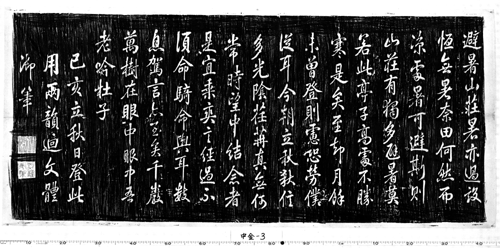 避暑山莊暑亦過設
恆無暑奈田何然而
涼處暑可避斯則
山莊有獨多避暑莫
若此亭子高處不勝
寒是矣至都月餘
未曾登則憲勞僕
從耳今立秋行
多光陰荏苒真無何
常時堂中結念者
是宜乘爽言經過不
須命騎命與耳數
息駕言矣千巖
萬樹在眼中眼中吾
老哈杜子
己亥立秋日登此
用兩韻迴文體
御筆
中全-3